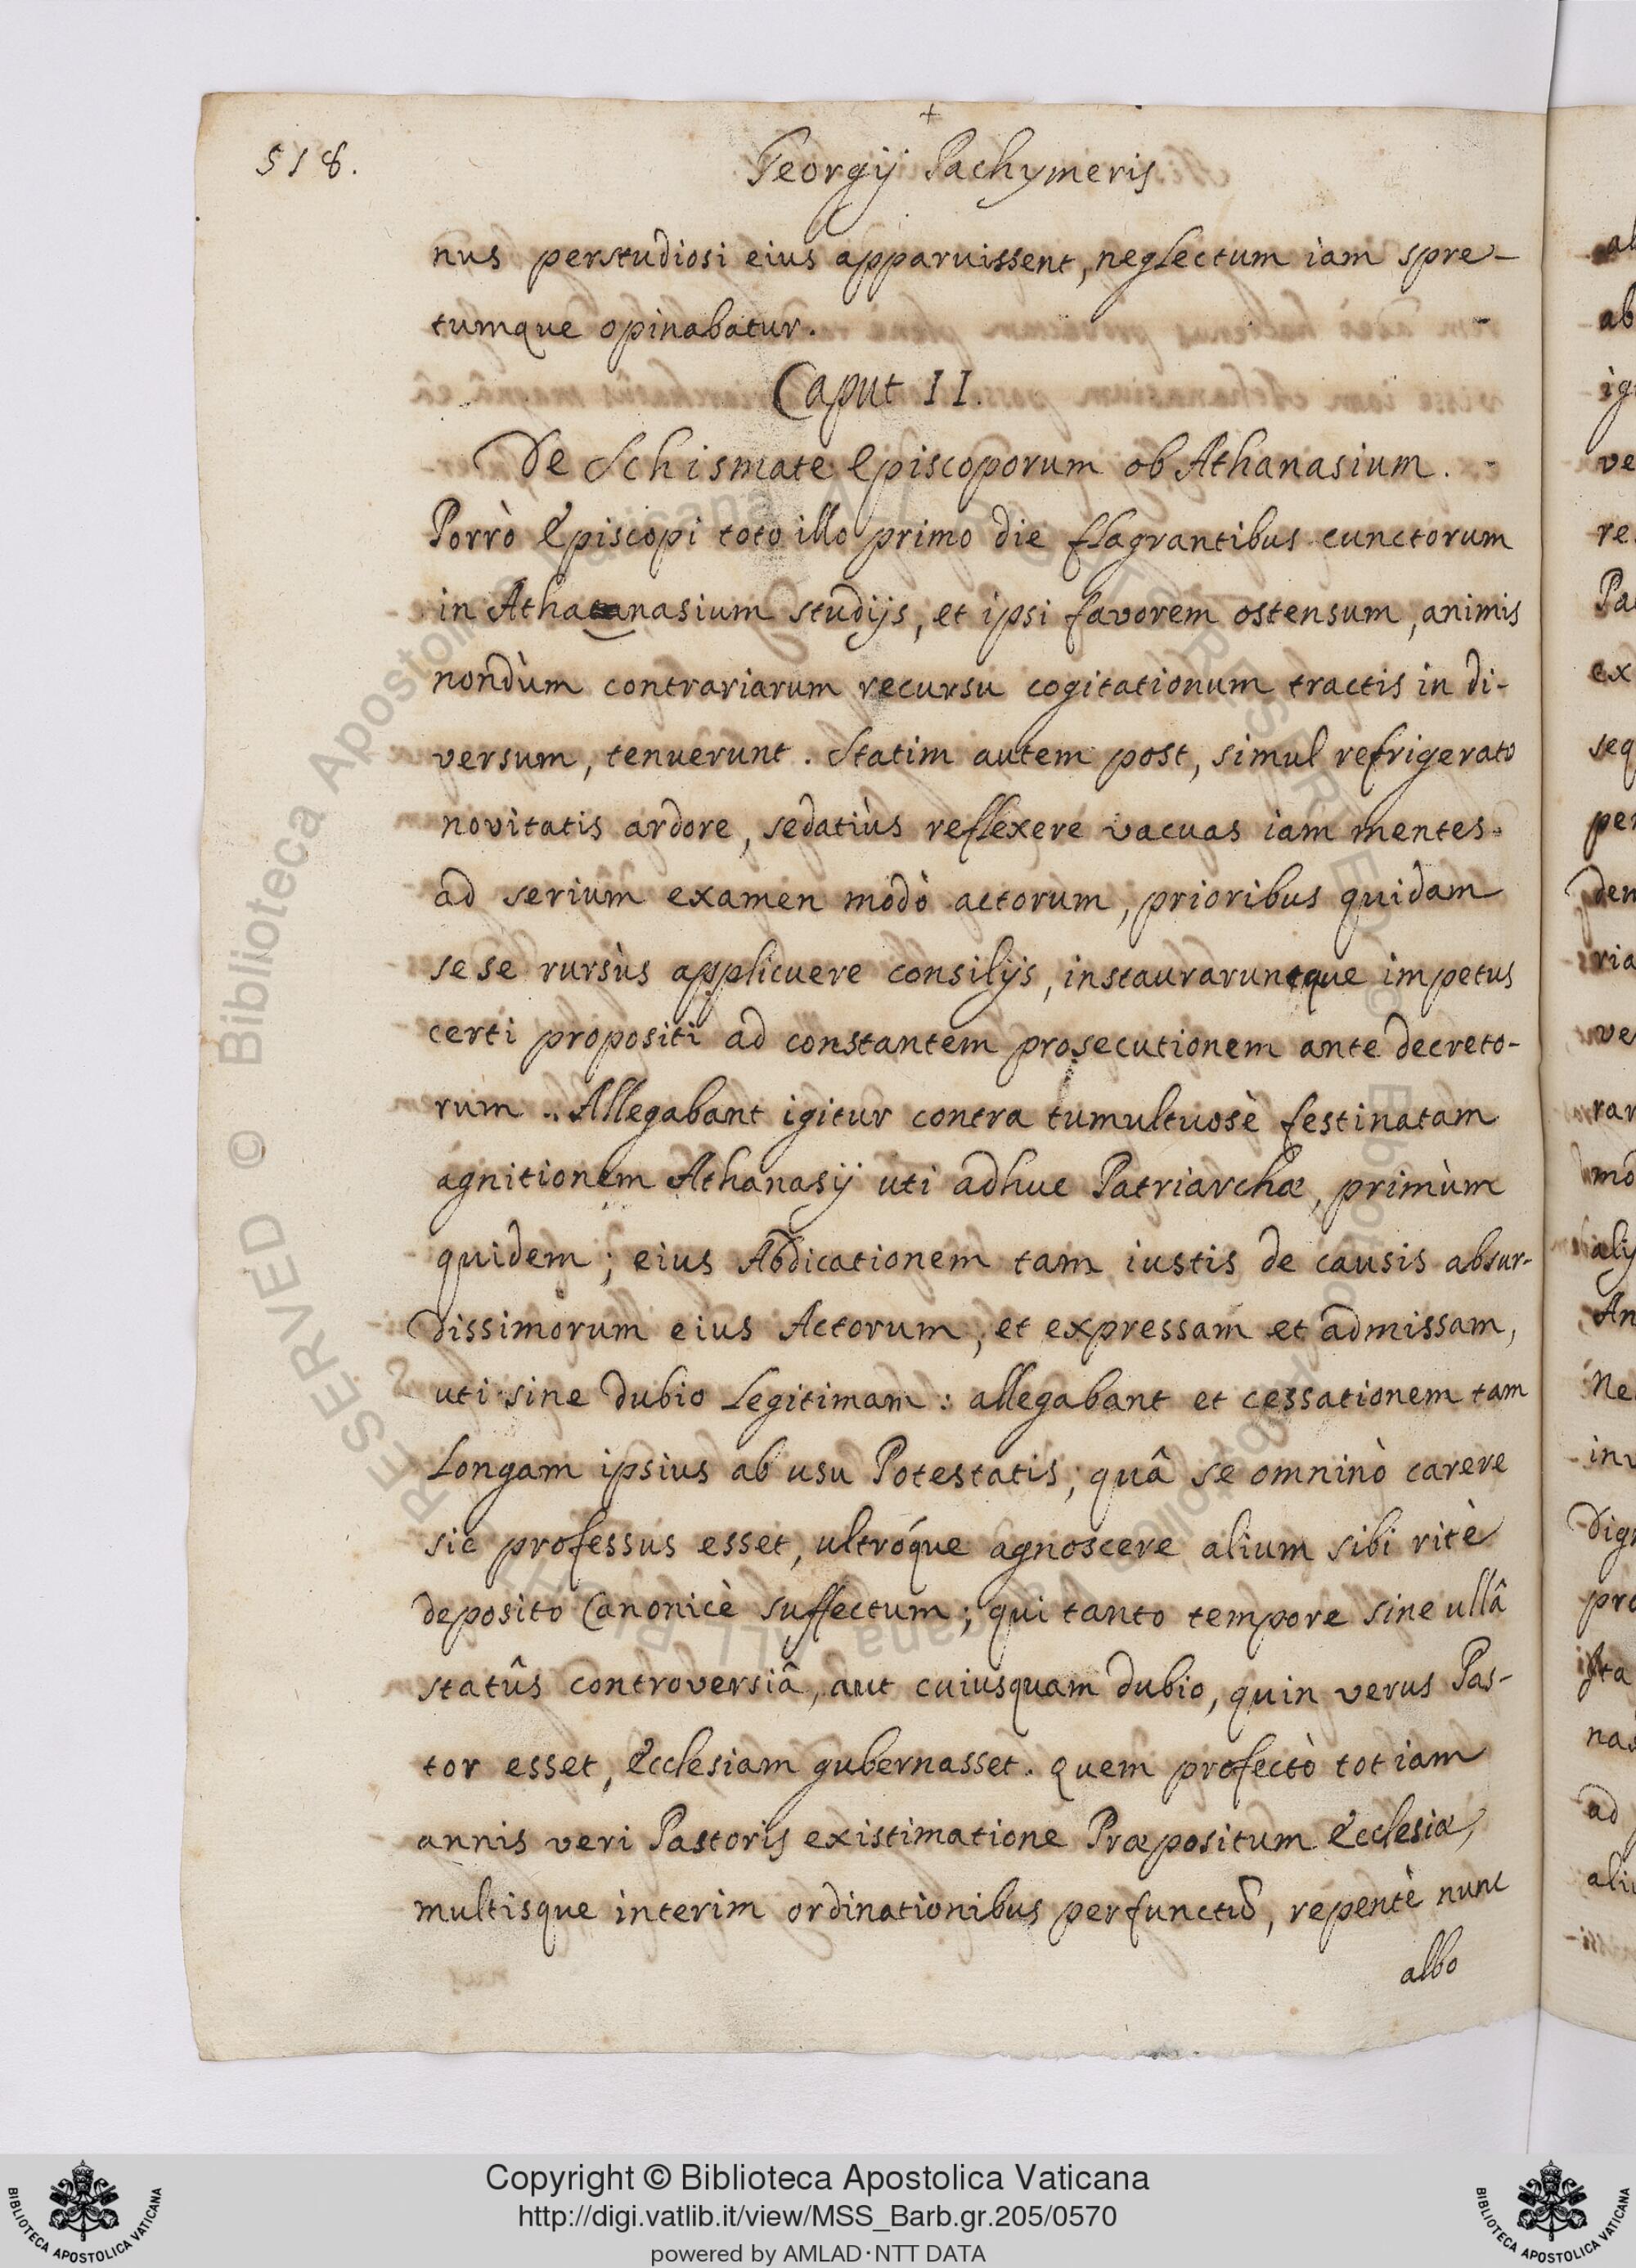 +
518.
Georgij Pachymeris
nus perstudiosi eius apparuissent, neglectum iam spre-
tumque opinabatur.
Caput II.
De Schismate Episcoporum ob Athanasium.
Porrò Episcopi toto illo primo die flagrantibus cunctorum
in Athanasium studijs, et ipsi favorem ostensum, animis
nondùm contrariarum recursu cogitationum tractis in di-
versum, tenuerunt. Statim autem post, simul refrigerato
novitatis ardore, sedatiùs reflexere vacuas iam mentes
ad serium examen modò actorum, prioribus quidam
se se rursùs applicuere consilijs, instauraruntque impetus
certi propositi ad constantem prosecutionem ante decreto-
rum. Allegabant igitur contra tumultuosè festinatam
agnitionem Athanasij uti adhuc Patriarchæ, primùm
quidem; eius Abdicationem tam iustis de causis absur-
dissimorum eius Actorum, et expressam et admissam,
uti sine dubio Legitimam: allegabant et cessationem tam
Longam ipsius ab usu Potestatis; quâ se omninò carere
sic professus esset, ultróque agnoscere alium sibi ritè
deposito Canonicè suffectum; qui tanto tempore sine ullâ
statûs controversiâ, aut cuiusquam dubio, quin verus Pas-
tor esset, Ecclesiam gubernasset. Quem profectò tot iam
annis veri Pastoris existimatione Præpositum Ecclesiæ,
multisque interim ordinationibus perfunctũ, repentè nunc
albo
Copyright © Biblioteca Apostolica Vaticana
http://digi.vatlib.it/view/MSS_Barb.gr.205/0570
powered by AMLAD·NTT DATA
BIBLIOTECA APOSTOLICA VATICANA
BIBLIOTECA APOSTOLICA VATICANA